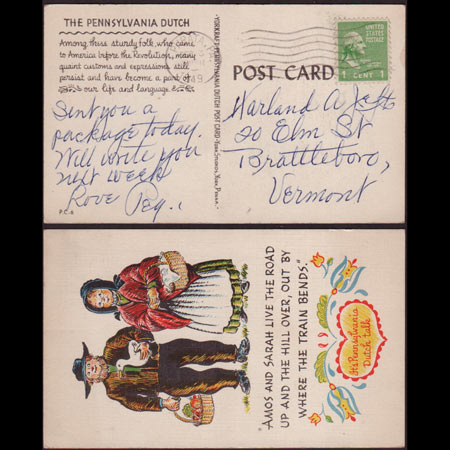 THE PENNSYLVANIA DUTCH
Among these sturdy folk, who came
to America before the Revolution, many
quaint customs and expressions still
persist and have become a part of
our life and language
Sent you a
package today.
Will write you
next week
Love Peg.
P.C.-6
PENNSYLVANIA DUTCH POST CARD
POST CARD
UNITED STATES
POSTAGE
1 CENT 1
Harland A
20 Elm St
Brattleboro,
Vermont
"AMOS AND SARAH LIVE THE ROAD
UP AND THE HILL OVER, OUT BY
WHERE THE TRAIN BENDS."
It's Pennsylvania
Dutch talk